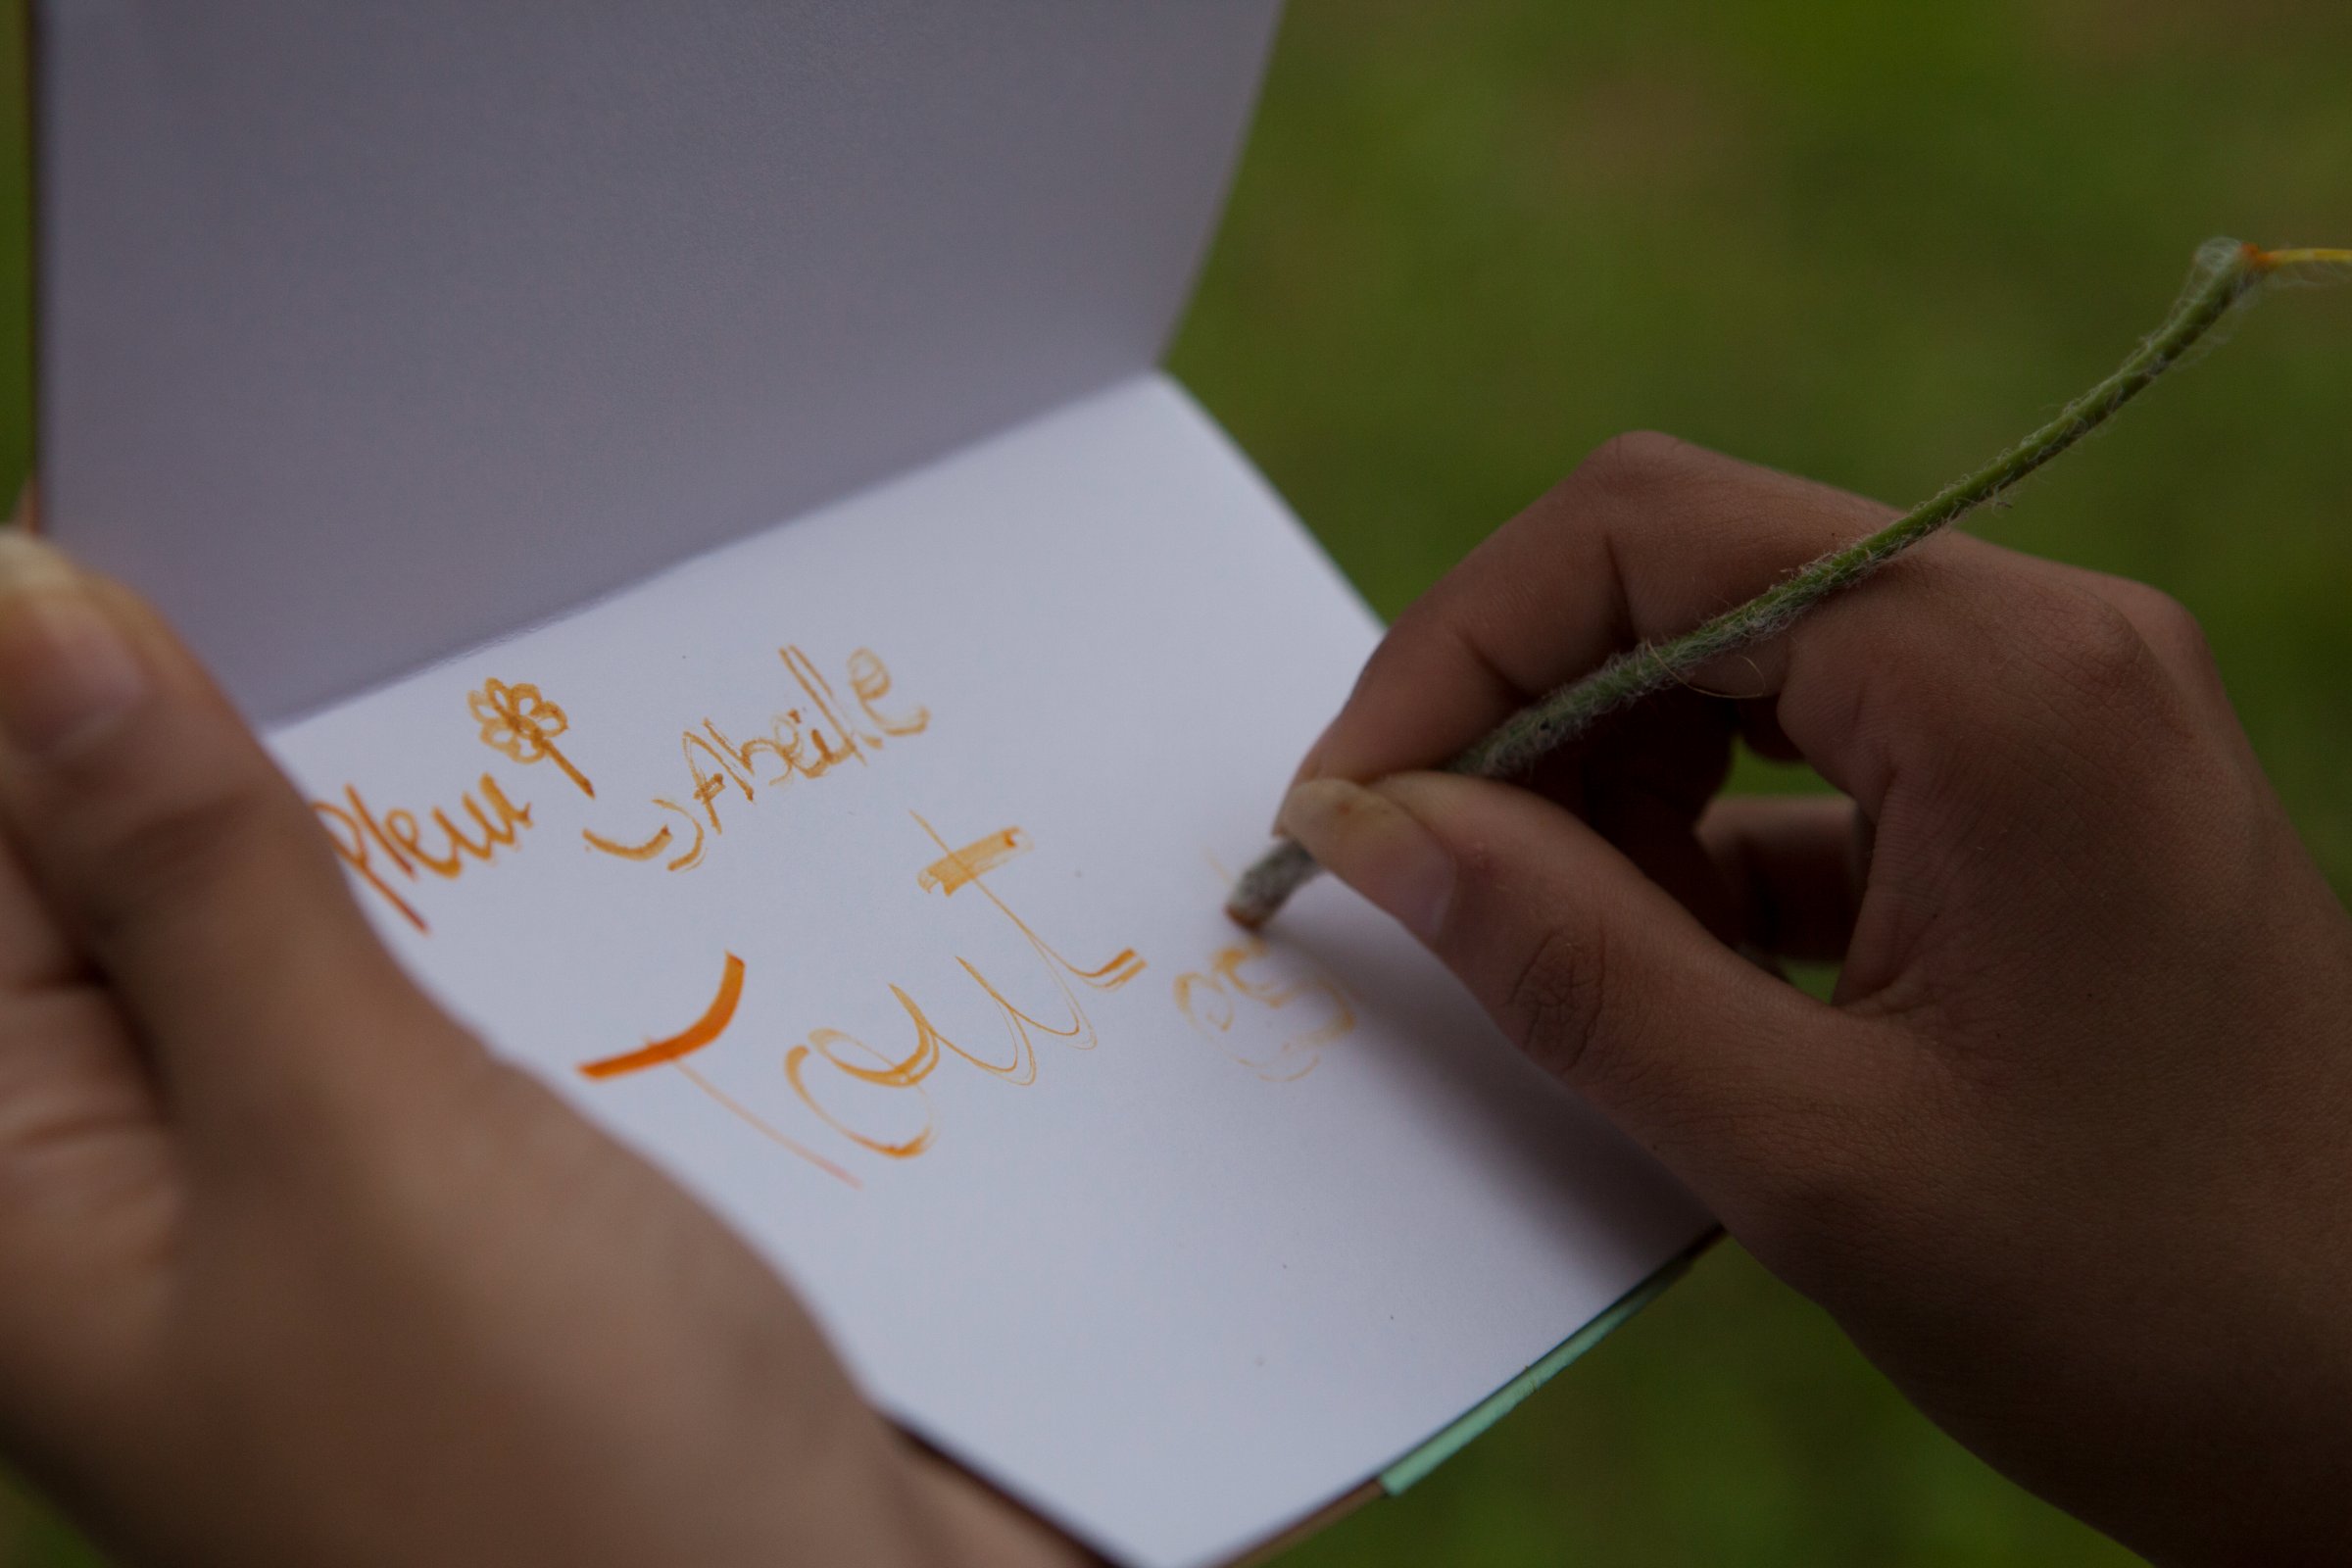 Pleur
Abeille
Tout